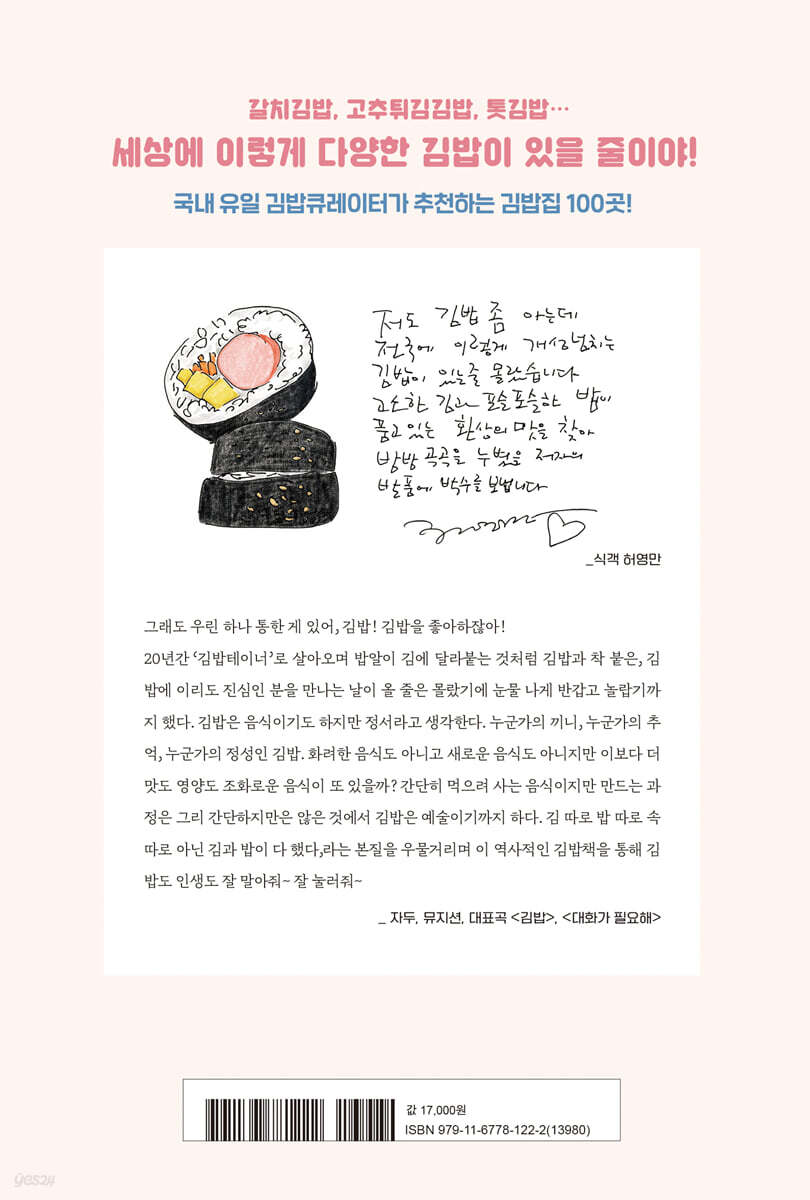 갈치김밥, 고추튀김김밥, 톳김밥…
세상에 이렇게 다양한 김밥이 있을 줄이야!
국내 유일 김밥큐레이터가 추천하는 김밥집 100곳!
저도 김밥 좀 아는데
전국에 이렇게 개성넘치는
김밥이 있는줄 몰랐습니다
고소한 김과 포슬포슬한 밥이
품고있는 환상의 맛을 찾아
방방곡곡을 누볐을 저자의
발품에 박수를 보냅니다
_식객 허영만
그래도 우린 하나 통한 게 있어, 김밥! 김밥을 좋아하잖아!
20년간 ‘김밥테이너’로 살아오며 밥알이 김에 달라붙는 것처럼 김밥과 착 붙은, 김
밥에 이리도 진심인 분을 만나는 날이 올 줄은 몰랐기에 눈물 나게 반갑고 놀랍기까
지 했다. 김밥은 음식이기도 하지만 정서라고 생각한다. 누군가의 끼니, 누군가의 추
억, 누군가의 정성인 김밥. 화려한 음식도 아니고 새로운 음식도 아니지만 이보다 더
맛도 영양도 조화로운 음식이 또 있을까? 간단히 먹으려 사는 음식이지만 만드는 과
정은 그리 간단하지만은 않은 것에서 김밥은 예술이기까지 하다. 김 따로 밥 따로 속
따로 아닌 김과 밥이 다 했다,라는 본질을 우물거리며 이 역사적인 김밥책을 통해 김
밥도 인생도 잘 말아줘~ 잘 눌러줘~
_ 자두, 뮤지션, 대표곡 <김밥>, <대화가 필요해>
값 17,000원
ISBN 979-11-6778-122-2(13980)
yes24